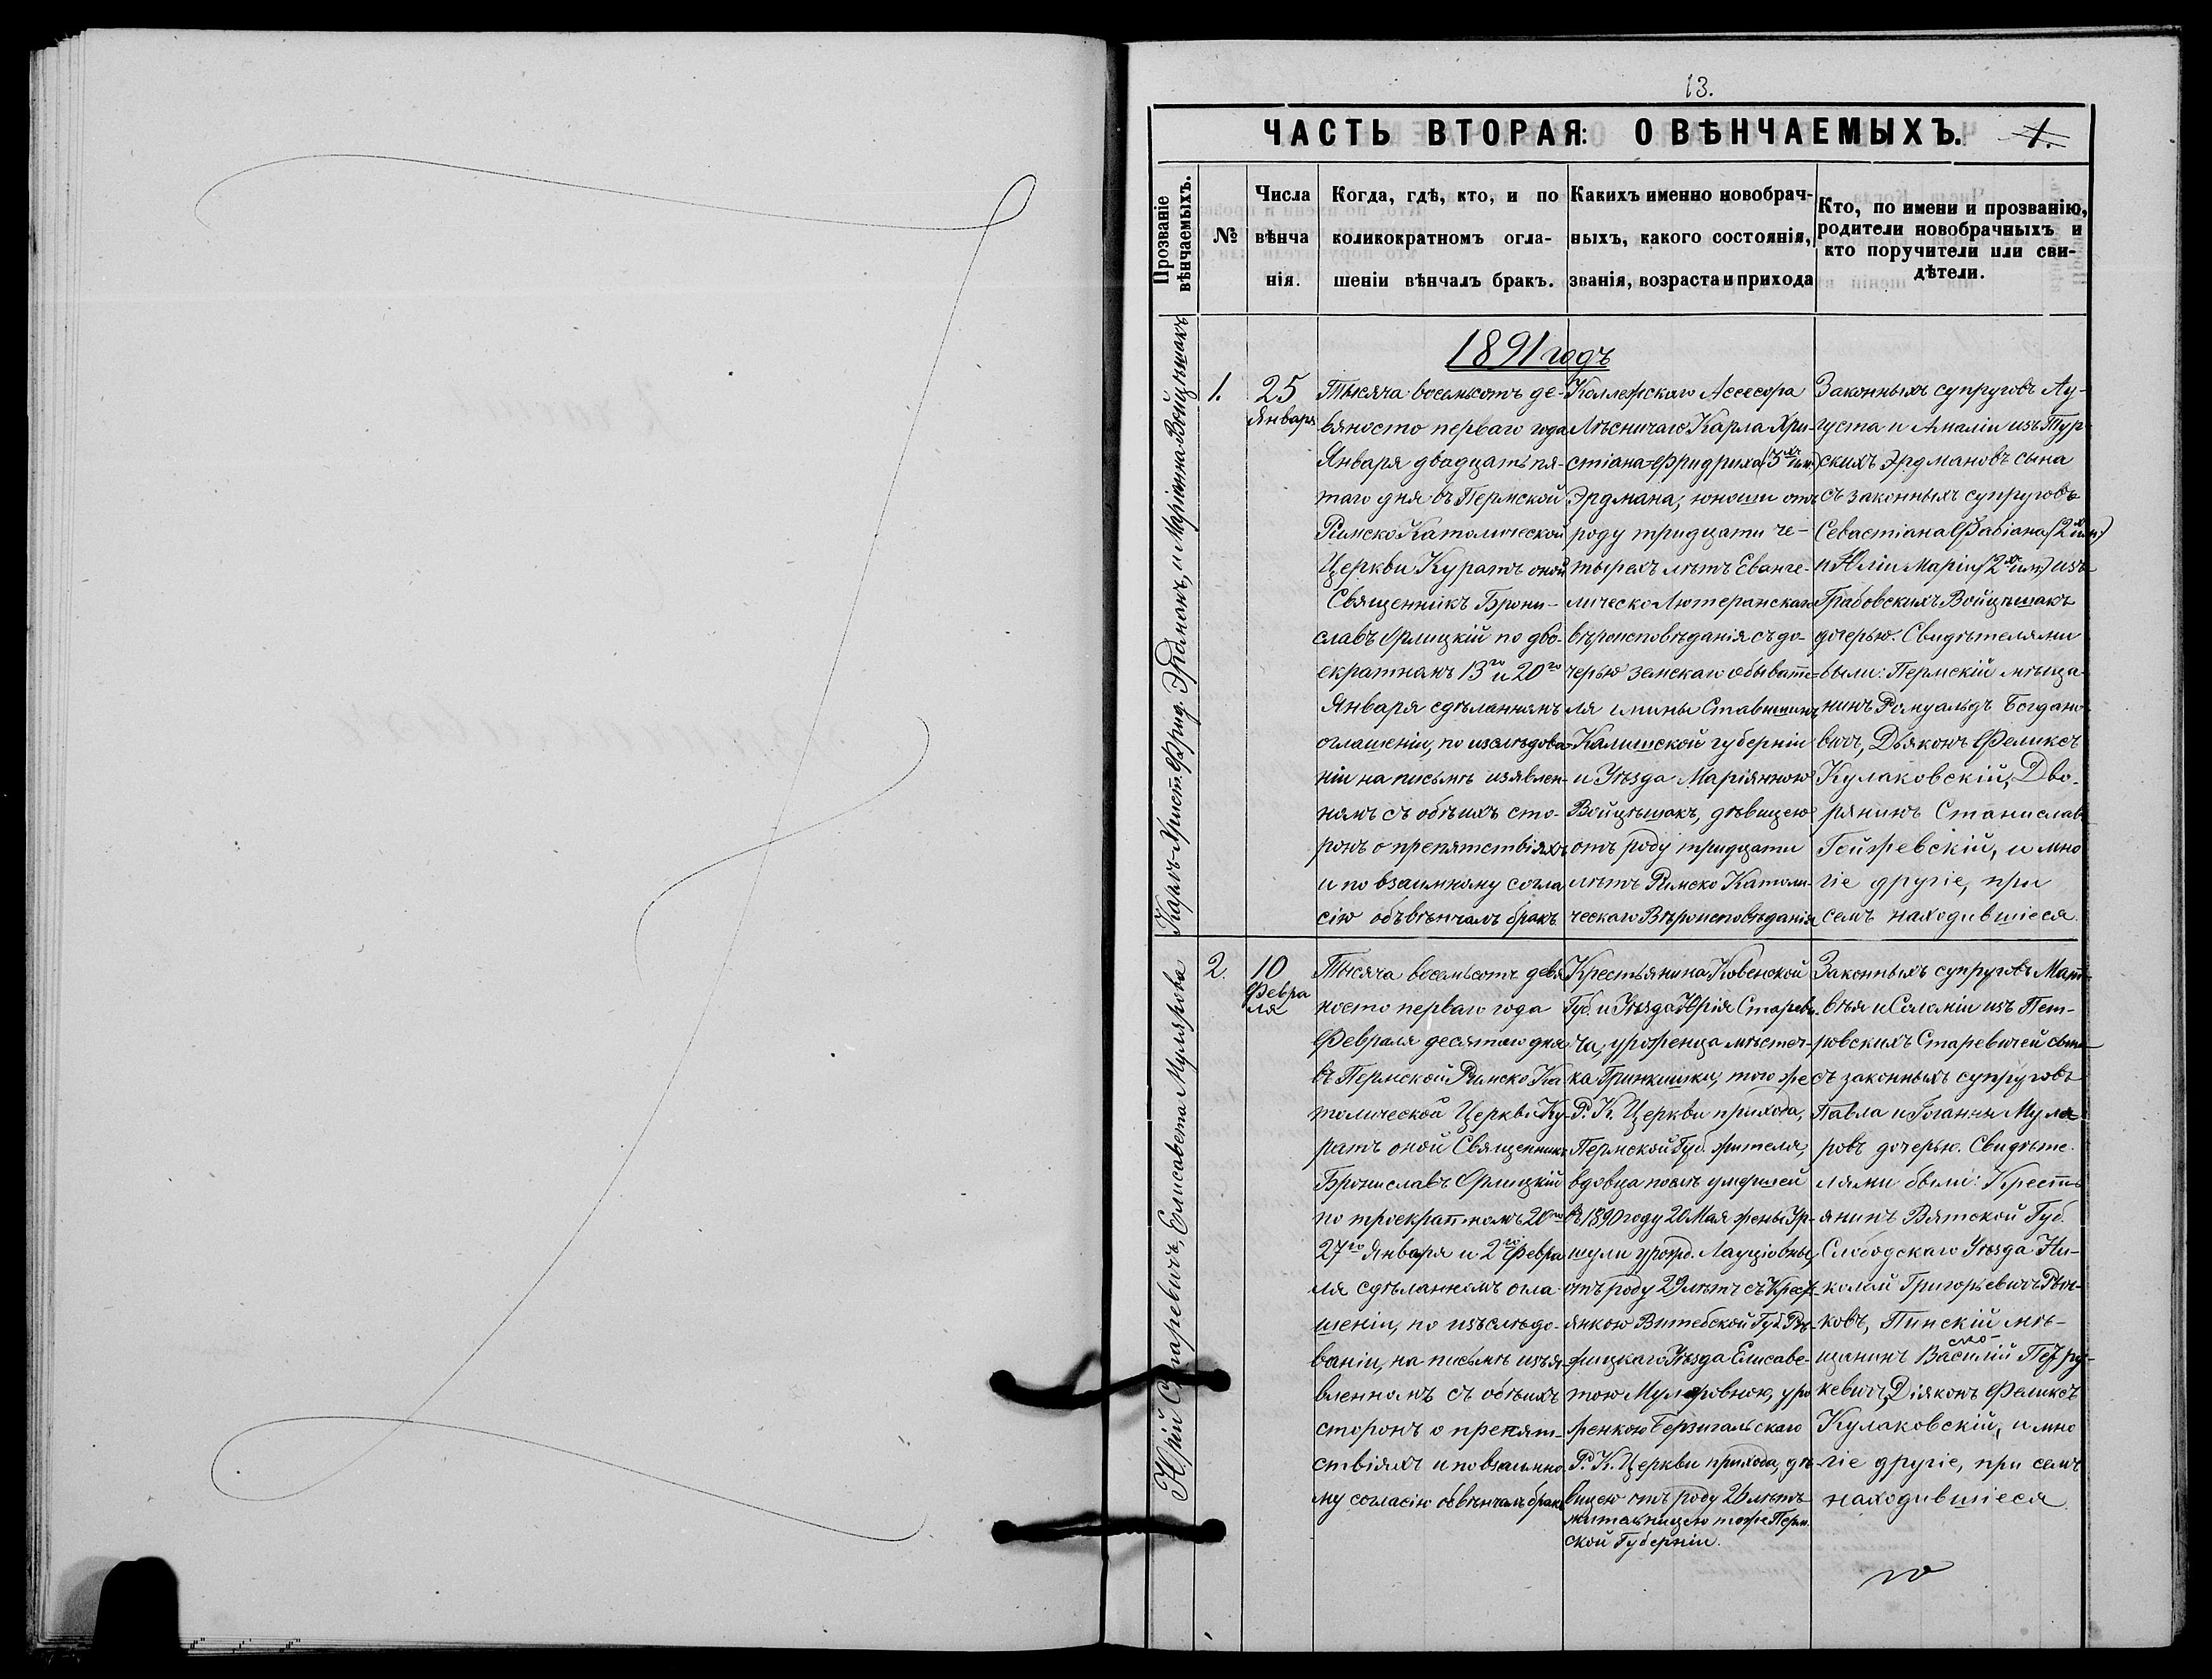 13.
ЧАСТЬ ВТОРАЯ: О ВѢНЧАЕМЫХЪ. 1.
Прозваніе
вѣнчаемыхъ.
№
Числа
вѣнча
нія.
Когда, гдѣ, кто, и по
коликократномъ огла-
шеніи вѣнчалъ бракъ.
Какихъ именно новобрач-
ныхъ, какого состоянія,
званія, возраста и прихода
Кто, по имени и прозванію,
родители новобрачныхъ и
кто поручители или сви-
дѣтели.
1891 годъ
Карлъ-Христ.-Фрид. Эрдманъ, и Маріанна Войцѣшакъ
1.
25
Января
Тысяча восемьсотъ де-
вяносто перваго года
Января двадцать пя-
таго дня въ Пермской
Римско Католической
Церкви Куратъ оной
Священникъ Брони-
славъ Орлицкій по дво-
екратномъ 13го и 20го
Января сдѣланномъ
оглашеніи, по изслѣдова-
ніи на письмѣ изявлен-
номъ съ обѣихъ сто-
ронъ о препятствіяхъ
и по взаимному согла
сію обвѣнчалъ бракъ
Коллежскаго Ассесора
Лѣсничаго Карла Хри-
стіана-Фридриха (3хъ им.)
Эрдмана, юноши отъ
роду тридцати че-
тырехъ лѣтъ Еванге-
лическо Лютеранскаго
вѣроисповѣданія съ до-
черью земскаго обывате-
ля гмины Ставишинъ
Калишской губерніи
и Уѣзда Маріянною
Войцѣшакъ, дѣвицею
отъ роду тридцати
лѣтъ Римско Католи-
ческаго Вѣроисповѣданія
Законныхъ супруговъ Ау-
густа и Амаліи изъ Тур-
скихъ Эрдмановъ сына
съ законныхъ супруговъ
Севастіана Фабіана (2хъ им)
и Юліи Маріи (2хъ им) изъ
Грабовскихъ Войцѣшакъ
дочерью. Свидѣтелями
были: Пермскій мѣща-
нинъ Ромуальдъ Богдано-
вичъ, Дьяконъ Феликсъ
Кулаковскій, Дво-
рянинъ Станиславъ
Гойжевскій, и мно
гіе другіе, при
семъ находившіеся.
Юрій Старевичъ, Елисавета Мулярова
2.
10
Февра
ля
Тысяча восемьсотъ девя
носто перваго года
Февраля десятаго дня
въ Пермской Римско Ка
толической Церкви Ку-
ратъ оной Священникъ
Брониславъ Орлицкій
по троекратномъ 20го
27го Января и 2го Февра
ля сдѣланномъ огла
шеніи, по изъслѣдо-
ваніи, на письмѣ изъя-
вленномъ съ обѣихъ
сторонъ о препят-
ствіяхъ и по взаимно
му согласію обвѣнчалъ бракъ
Крестьянина Ковенской
Губ. и Уѣзда Юрія Стареви-
ча, уроженца мѣстеч-
ка Гринкишки, того же
Р. К. Церкви прихода,
Пермской Губ. жителя,
вдовца послѣ умершей
въ 1890 году 20 Мая жены Ур-
шули урожд.
отъ роду 29 лѣтъ съ Кресть-
янкою Витебской Губ. Рѣ-
жицкаго Уѣзда Елисаве-
тою Муляровною, уро
женкою Берзигальскаго
Р. К. Церкви прихода, дѣ-
вицею отъ роду 26 лѣтъ
жительницею тоже Перм.
ской Губерніи.
Законныхъ супруговъ Мат-
вѣя и Саломіи изъ Пет-
ровскихъ Старевичей сына
съ законныхъ супруговъ
Павла и Іоанны Муля-
ровъ дочерью. Свидѣте-
лями были: Кресть-
янинъ Вятской Губ.
Слободскаго Уѣзда Ни-
колай Григорьевичъ
ковъ, Пинскій мѣ-
щанинъ Василій
кевичъ, Діяконъ Феликсъ
Кулаковскій, и мно
гіе другіе, при семъ
находившіеся.